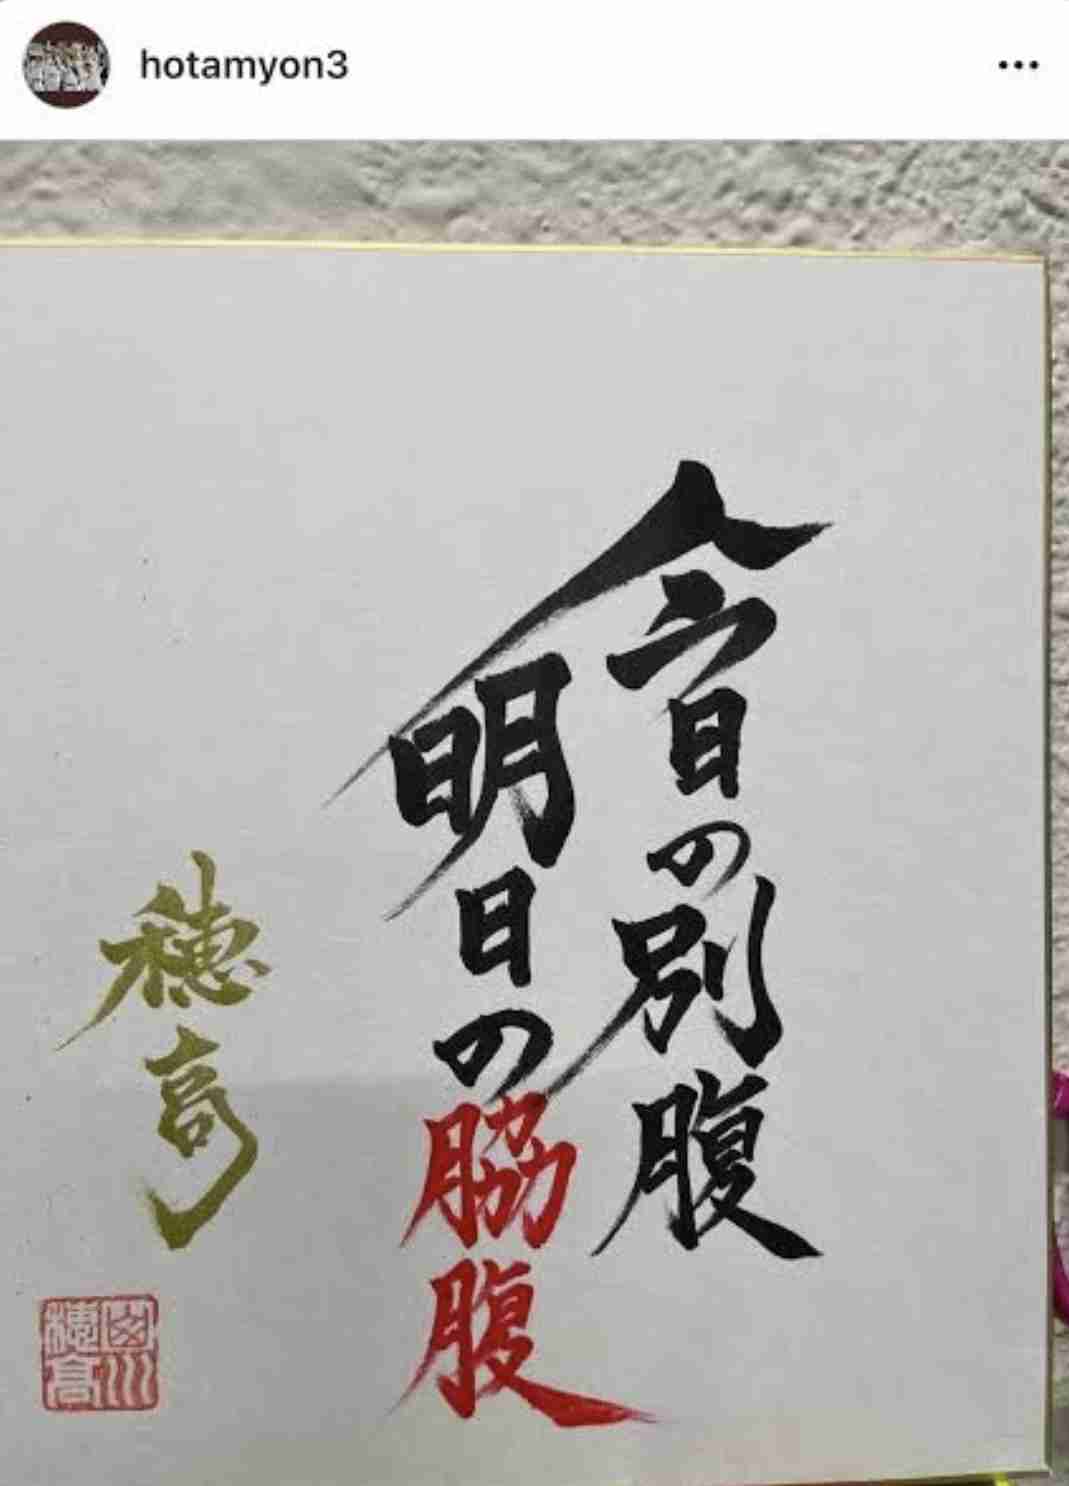 hotamyon3
今日の別腹
明日の脇腹
穂高